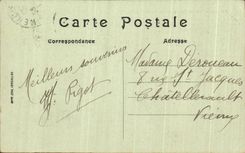 Carte Postale
Correspondance
Adresse
Meilleurs souvenirs
Pigot
Madame
8 rue St Jacques
Châtellerault
Vienne